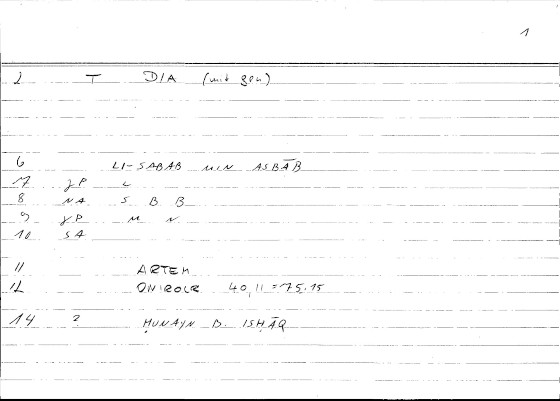 1
2 T DIA (mit gen)
6 LI-SABAB MIN ASBĀB
17 JP L
8 NA S B B
9 JP M N
10 SA
11 ARTEM
12 ONIROCR 40,11 = 75.15
14 2 ḤUNAYN B. ISḤĀQ